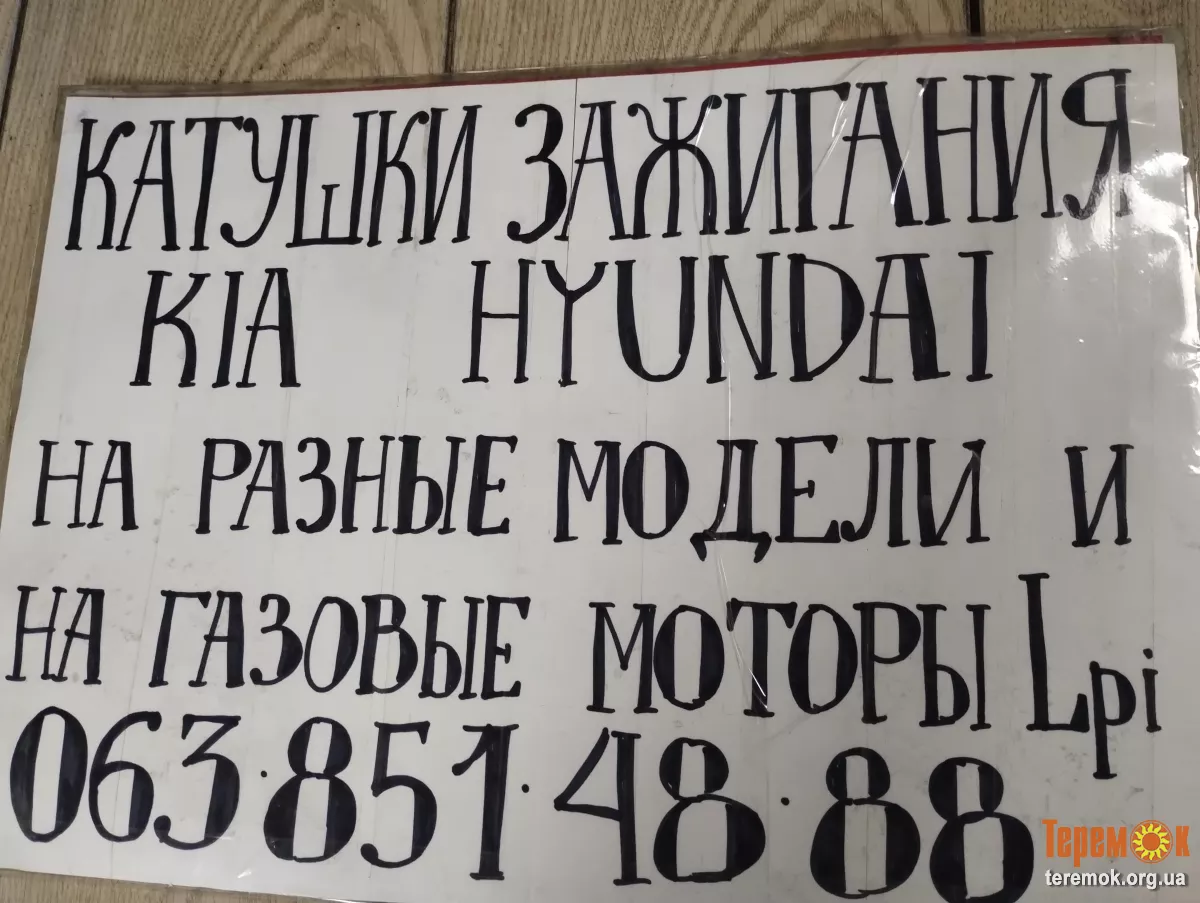 КАТУШКИ ЗАЖИГАНИЯ
KIA HYUNDAI
НА РАЗНЫЕ МОДЕЛИ И
НА ГАЗОВЫЕ МОТОРЫ Lpi
063·851·48·88
Теремок
teremok.org.ua